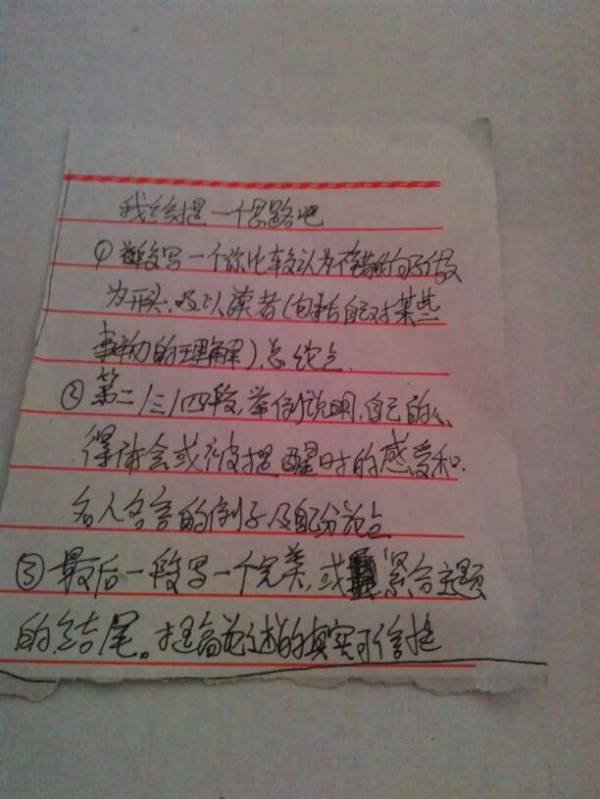 我给提一个思路吧
①首段写一个你比较认为不错的句子做
为开头,及以读者(包括自己对某些
事物的理解)总论点.
②第二/三/四段,举例说明,自己的心
得体会或被提醒时的感受和
名人名言的例子及配分论点
③最后一段写一个完美,或紧合主题
的结尾。提高论述的真实可信性